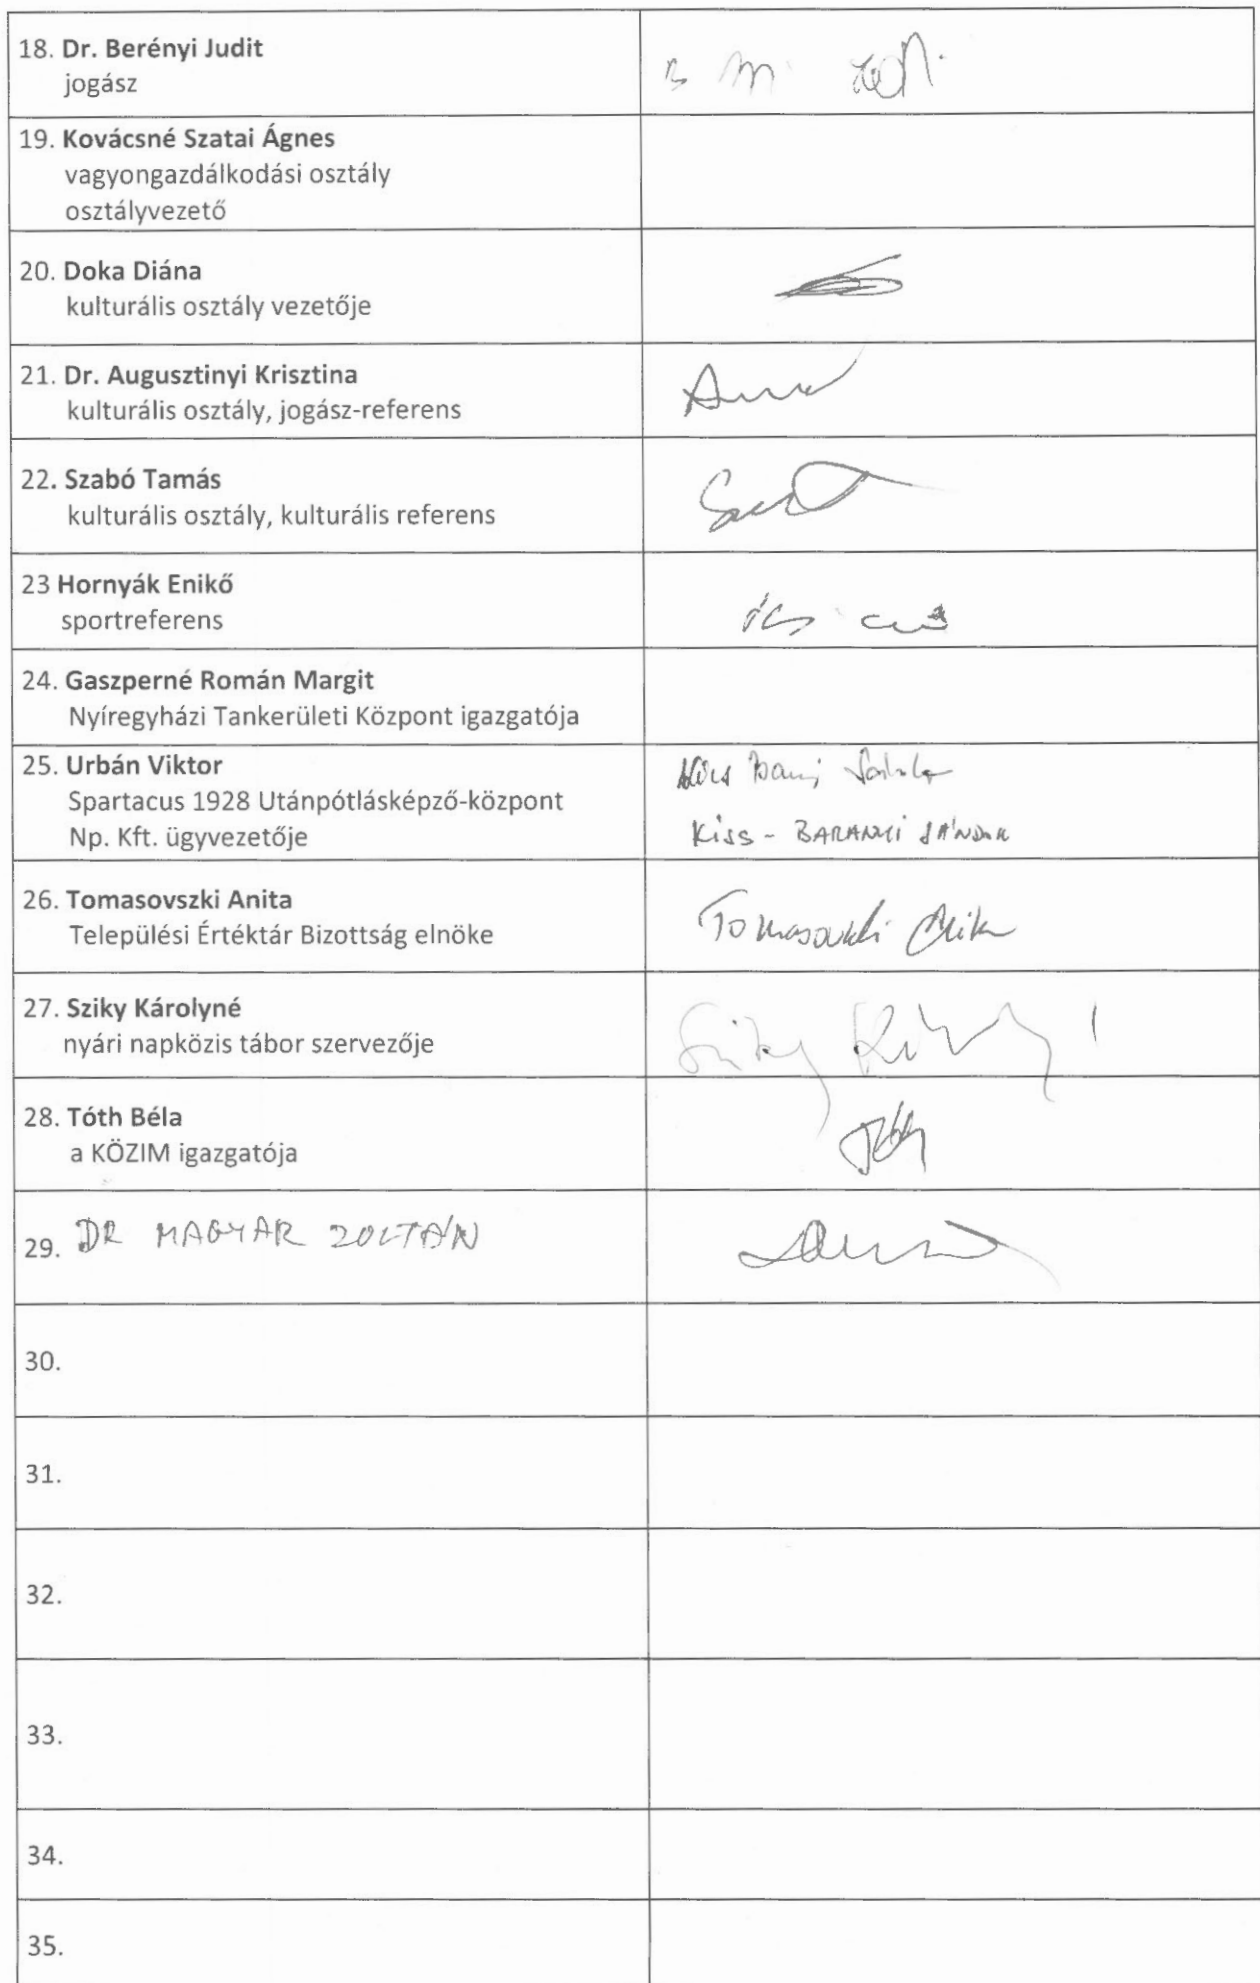 18. Dr. Berényi Judit
jogász
19. Kovácsné Szatai Ágnes
vagyongazdálkodási osztály
osztályvezető
20. Doka Diána
kulturális osztály vezetője
21. Dr. Augusztinyi Krisztina
kulturális osztály, jogász-referens
22. Szabó Tamás
kulturális osztály, kulturális referens
23 Hornyák Enikő
sportreferens
24. Gaszperné Román Margit
Nyíregyházi Tankerületi Központ igazgatója
25. Urbán Viktor
Spartacus 1928 Utánpótlásképző-központ
Np. Kft. ügyvezetője
KISS - BARANYI SÁNDOR
26. Tomasovszki Anita
Települési Értéktár Bizottság elnöke
27. Sziky Károlyné
nyári napközis tábor szervezője
28. Tóth Béla
a KÖZIM igazgatója
29. DR MAGYAR ZOLTÁN
30.
31.
32.
33.
34.
35.